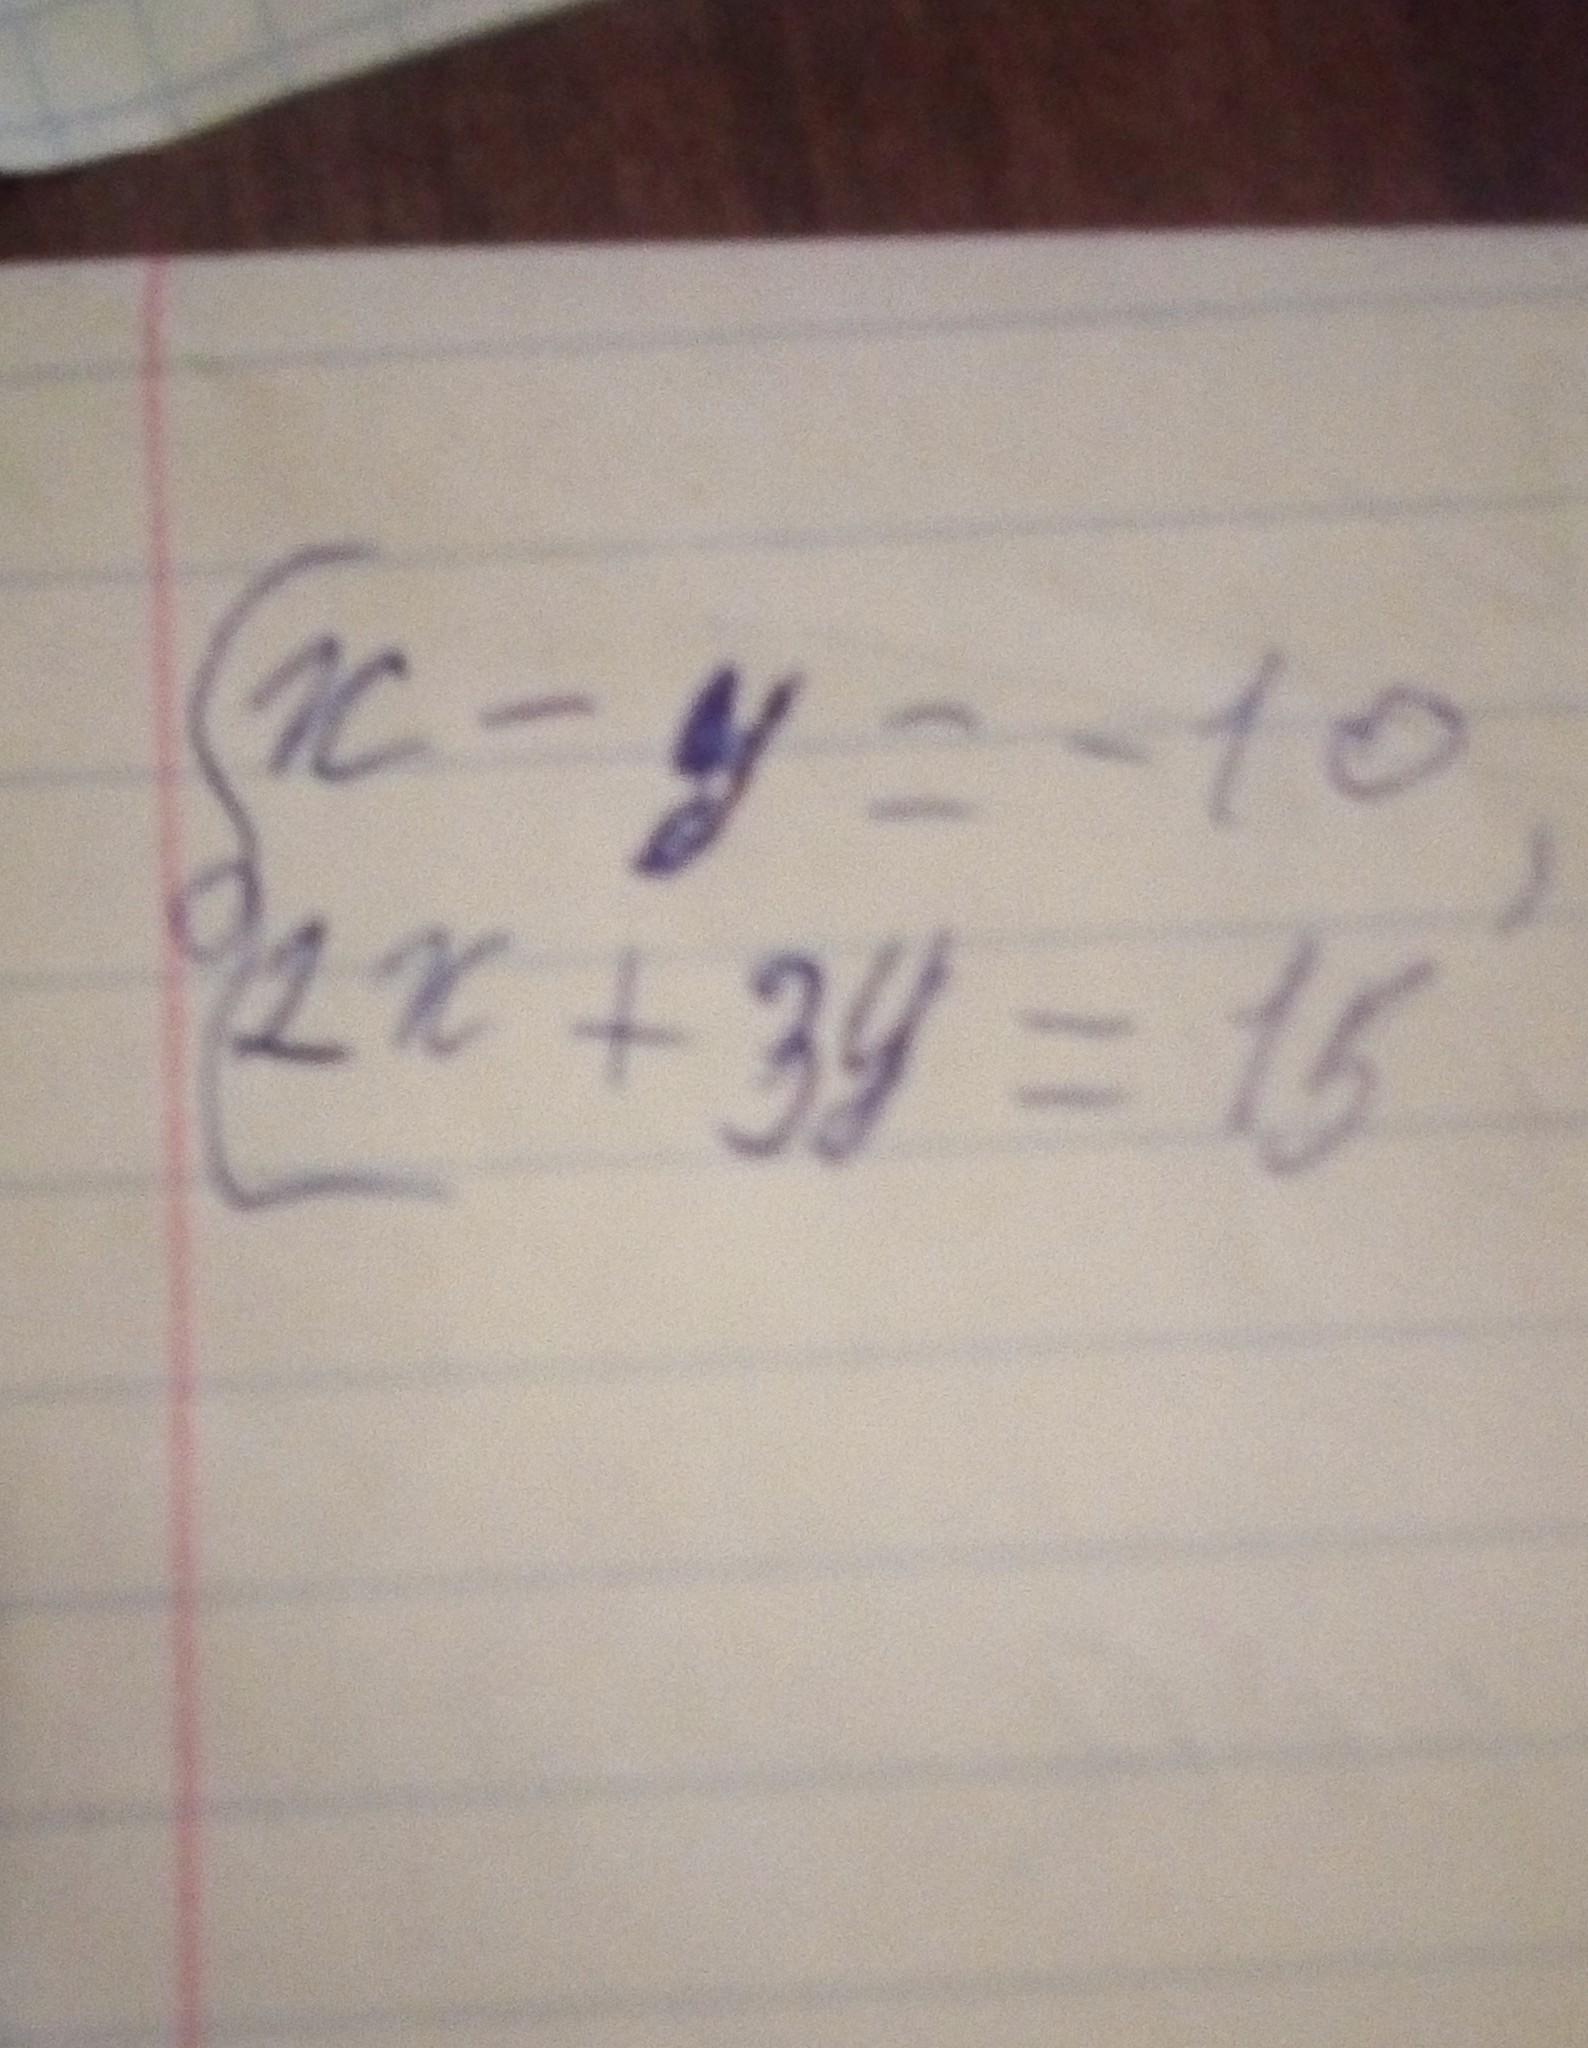 x - y = -10,
2x + 3y = 15